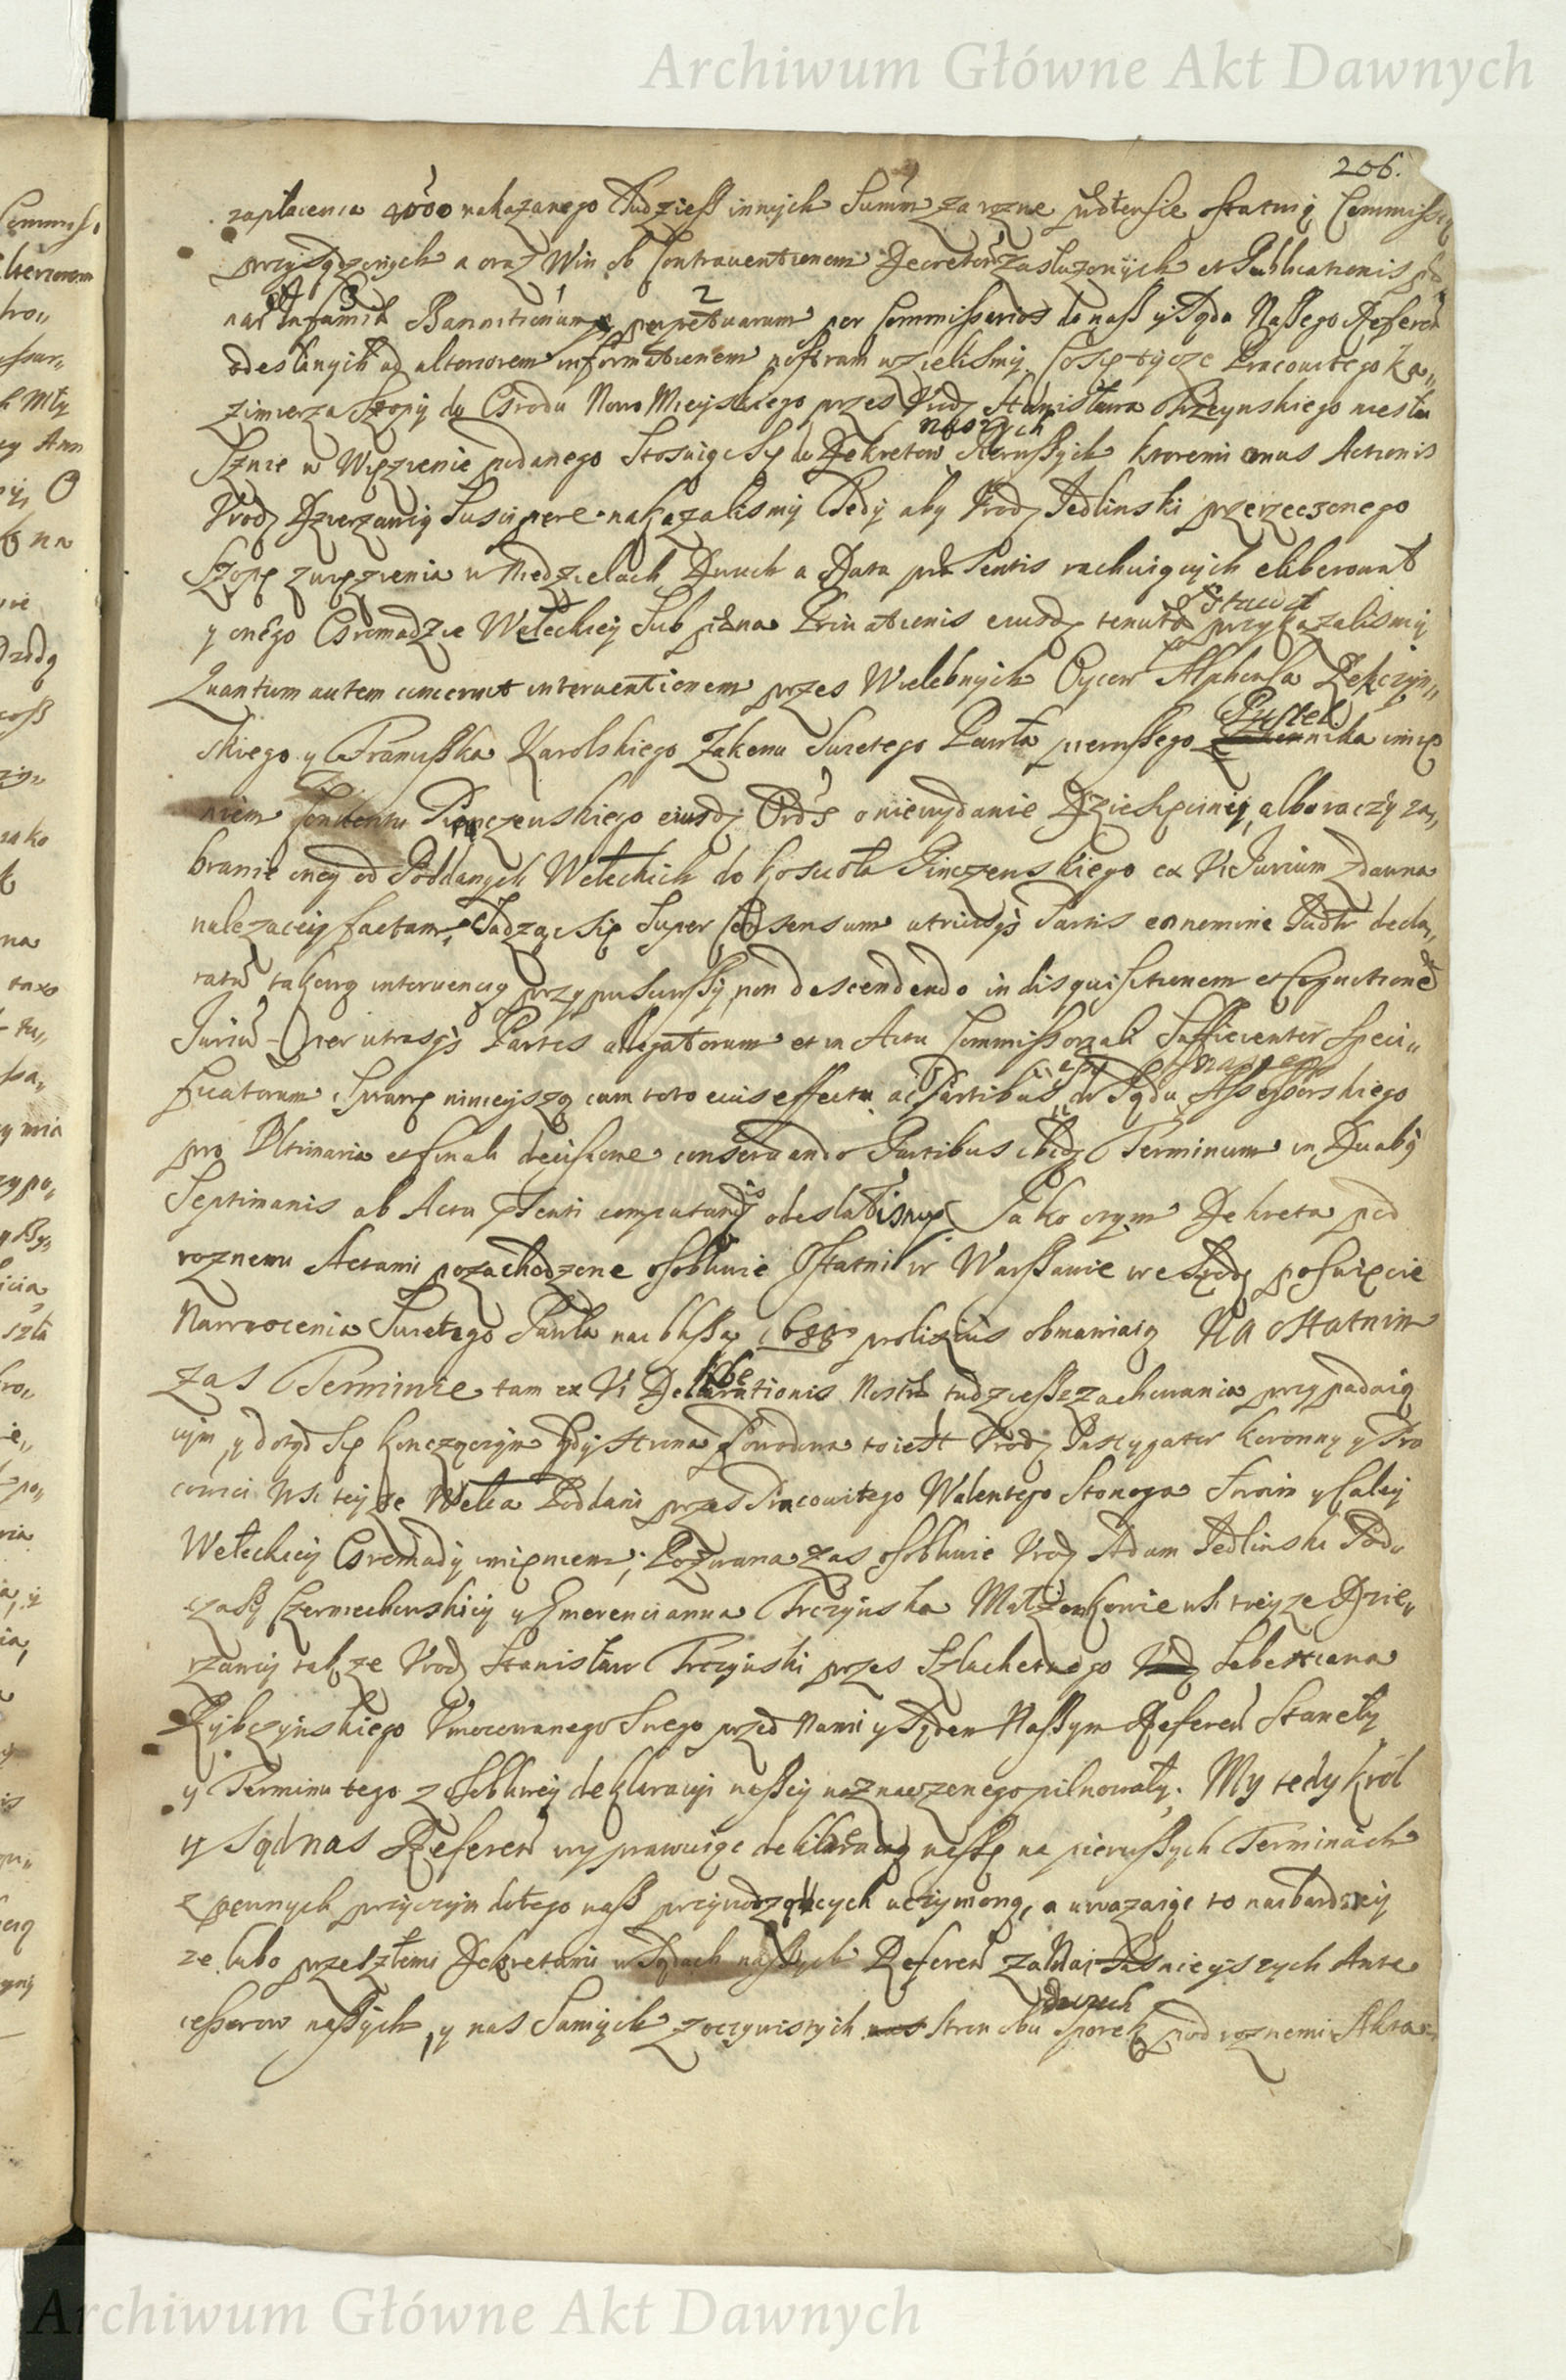 Archiwum Główne Akt Dawnych
206.
zapłacenia 4000 nakazanego Tudzieß innych Summ za rozne ostatnią Commissyą
przysądzonych a oraz Win ob Contraventionem Decretorum zasłuzonych et Publicationis
Infamiae 3 Bannitionum 1 perpetuarum 2 per Commissarios do naß y Sądu Naßego Referen
odesłanych ad ulteriorem informationem nostram wzieliśmy. Co się tycze Pracowitego Ka„
zimierza Szopy do Grodu Nowo Mieyskiego przes Urodz Stanisława Trczynskiego niesłu
Sznie w Więzienie podanego Stosuiąc Się do Dekretow naszych Pierwßych ktoremi onus Actionis
Urodz Dzierzawcy Suscipere nakazaliśmy Tedy aby Urodz Jedlinski przerzeczonego
Szopę z więzienia w Niedzielach Dwuch a Data praesentis rachuiących eliberował
y onego Gromadzie Wełeckiey Sub paena Privationis eiusdz tenutae Stawił przykazaliśmy
Quantum autem concernit interventionem przes Wielebnych Oycow Alphonsa Rękczyn„
skiego y Francißka Karolskiego Zakonu Swietego Pawła pierwßego Pustelnika imie
niem Conventu Pinczewskiego eiusdz Ord's o niewydanie Dziesięciney, albo raczy za„
branie oney od Poddanych Wełeckich do koscioła Pinczewskiego ex Vi Jurium zdawna
nalezącey factam, Sadząc się Super Consensum utriusqs Partis
takową interwencyą przypusciwßy non descendendo in disquisitionem et Cognitionem
Jurium per utrasqs Partes allegatorum et in Actu Commissoriali Sufficienter Speci„
ficatorum Sprawę ninieyszą cum toto eius effectu ac Partibus do Sądu naszego Assessorskiego
pro Ultimaria et finali decisione conservando Partibus ibidz Terminum in Duabus
Septimanis ab Actu psenti computandis odesłaliśmy Jako o tym Dekreta pod
roznemi Actami pozachodzone osobliwie Ostatni w Warßawie we Srodę po Swięcie
Nawrocenia Swietego Pawła naibliżßą 1688 prolixius obmawiaią Na Ostatnim
zas Terminie tam ex Vi Deliberationis Nostrae tudzieß z zachowania przypadaią
cym y dotąd Się konczącym gdy strona Powodowa to iest Urodz Instygator Koronny y Pra
cowici Wsi teyze Wełca Poddani przes Pracowitego Walentego Stonoga Swoim y Całey
Wełeckiey Gromady imieniem; Pozwana zas osobliwie Urodz Adam Jedlinski Pod„
czaßy Czerniechowskiey y Emerencianna Trczynska Małzonkowie wsi teyze Dzie„
rzawcy takze Urodz Stanisław Trczynski przes Szlachetnego Sebestiana
Rybczynskiego Umocowanego Swego przed Nami y Sądem Naßym Referen Stanęły
y Terminu tego z osobliwey deklaracyi naßey naznaczonego pilnowały. My tedy Król
y Sąd nas Referen wyprawuiąc deliberacyą naßę na pierwßych Terminach
z pewnych przyczyn do tego naß przywodzących uczynioną, a uwazaiąc to naibardziey
ze lubo przeszłemi Dekretami w Sądach naßych Referen za Nai Iasnieyszych Ante
cessorow naßych, y nas Samych z oczywistych stron obu dwuch Sporek pod roznemi Akta
Archiwum Główne Akt Dawnych